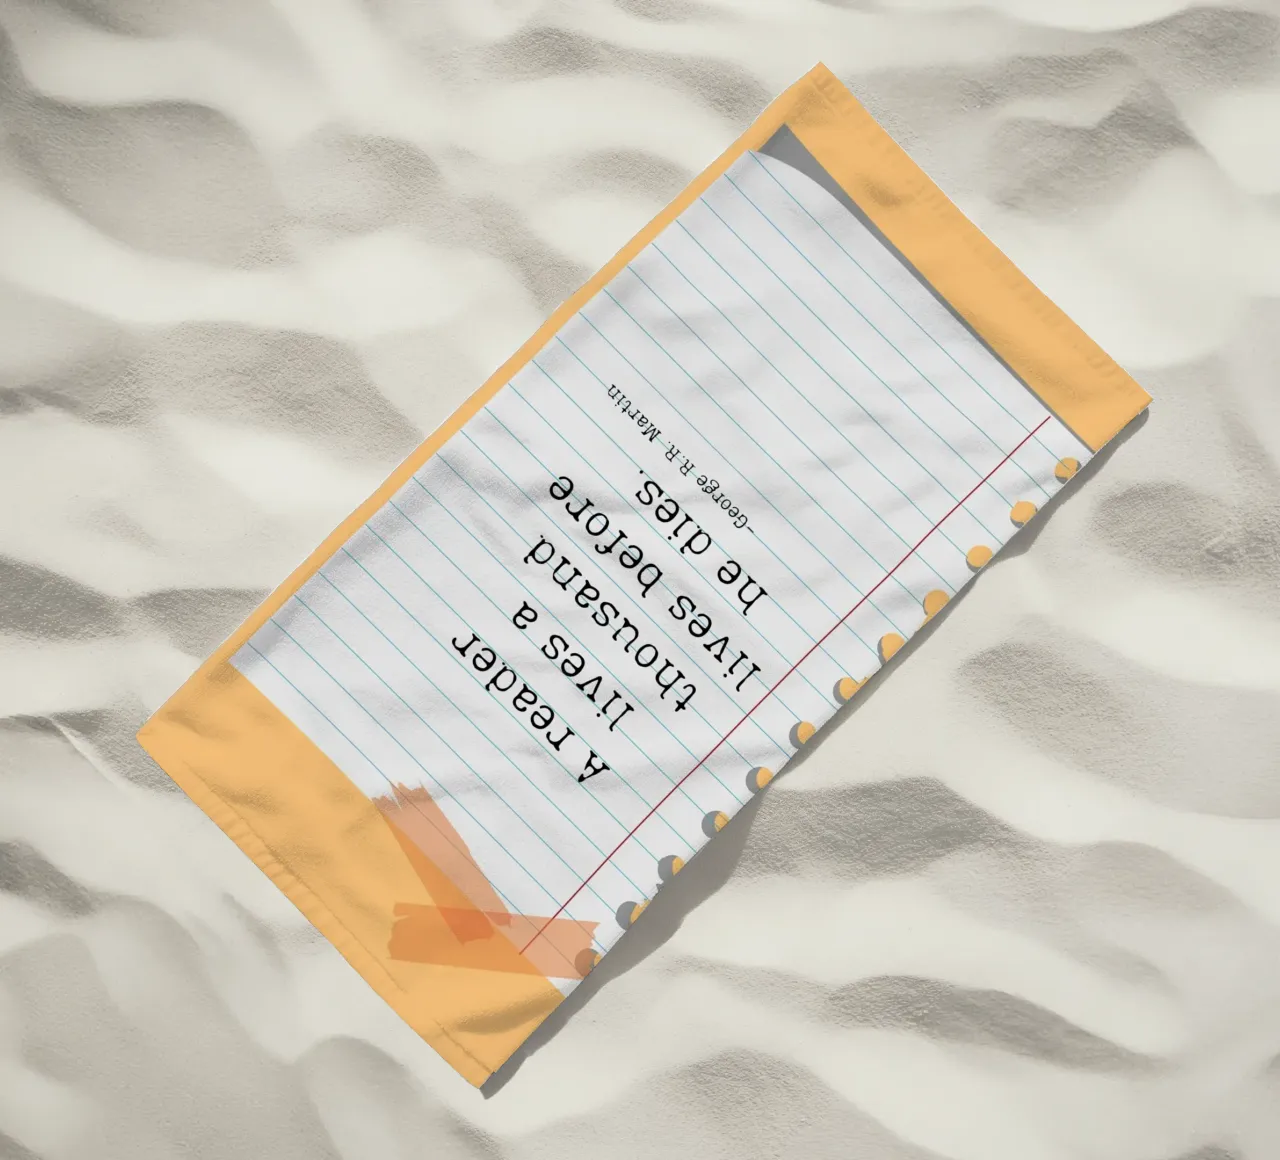 A reader
lives a
thousand
lives before
he dies.
-George R.R. Martin